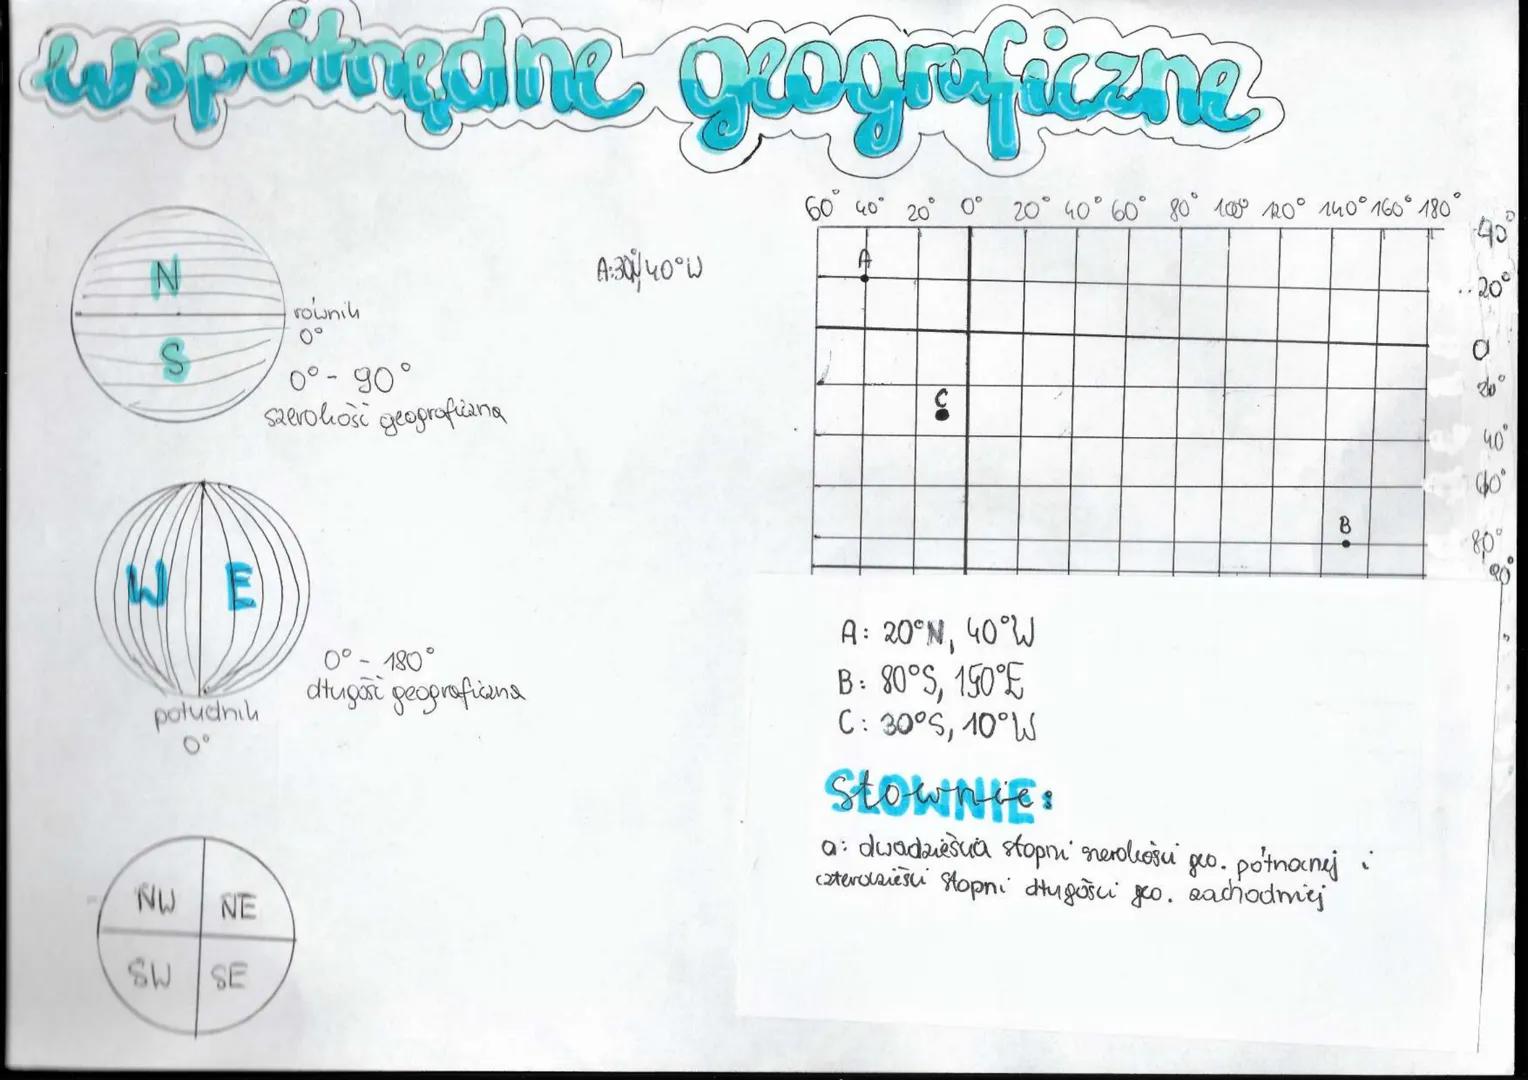 współrzędne geograficzne
60° 40° 20° 0° 20° 40° 60° 80° 100° 120° 140° 160° 180°
40°
20°
0
20°
40°
60°
80°
90°
A
C
B
N
S
równik
0°
0° - 90°
szerokość geograficzna
A:30°N, 40°W
W E
0° - 180°
długość geograficzna
południk
0°
NW NE
SW SE
A: 20°N, 40°W
B: 80°S, 150°E
C: 30°S, 10°W
SŁOWNIE:
a: dwadzieścia stopni szerokości geo. północnej i
czterdzieści stopni długości geo. zachodniej